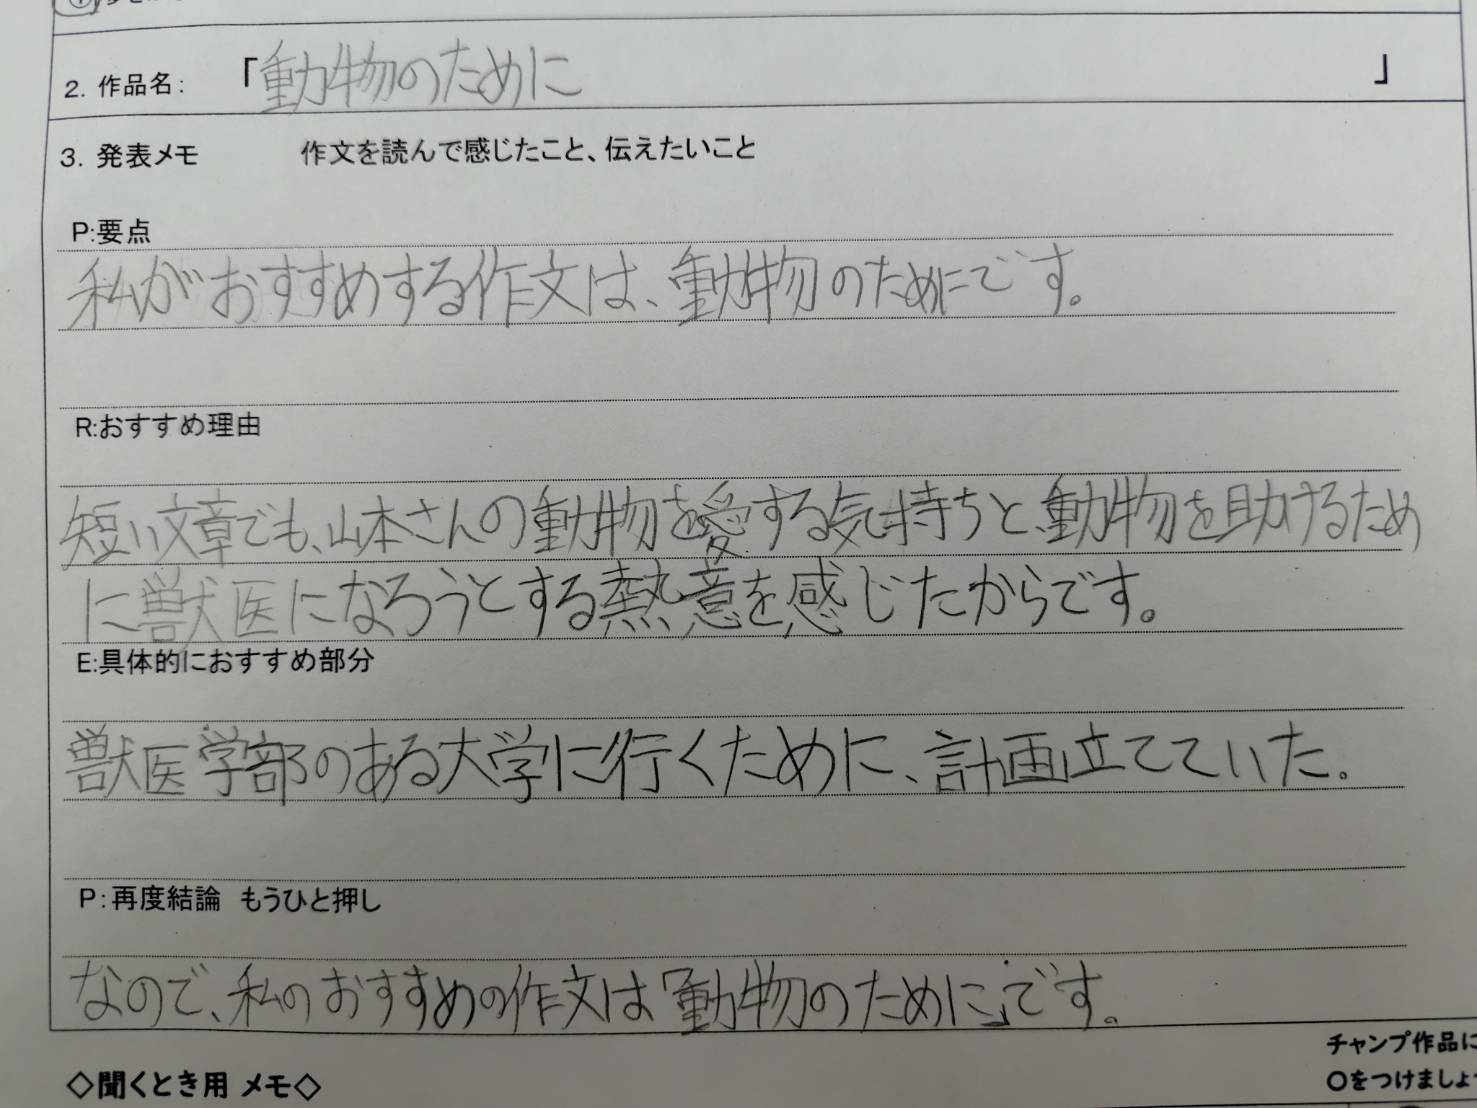 2. 作品名: 「動物のために 」
3. 発表メモ 作文を読んで感じたこと、伝えたいこと
P:要点
私がおすすめする作文は、動物のためにです。
R:おすすめ理由
短い文章でも、山本さんの動物を愛する気持ちと、動物を助けるため
に獣医になろうとする熱意を感じたからです。
E:具体的におすすめ部分
獣医学部のある大学に行くために、計画立てていた。
P:再度結論 もうひと押し
なので、私のおすすめの作文は「動物のために」です。
チャンプ作品に
◇聞くとき用 メモ◇
○をつけましょ